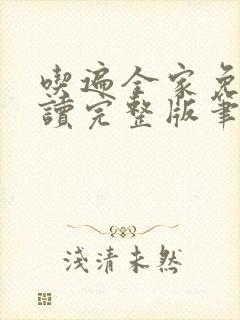 喫遍全家免
讀完整版筆
淺清未然